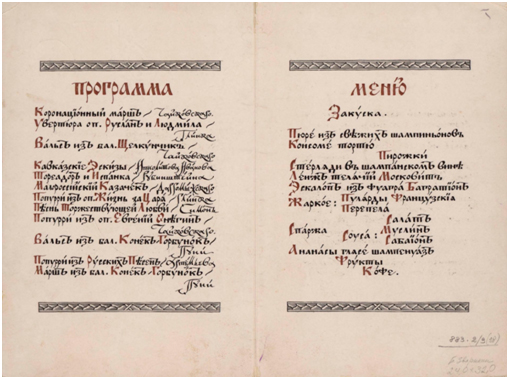 ПРОГРАММА
Коронаціонный маршъ / Чайковскаго.
Увертюра оп. Русланъ и Людмила /
Глинка
Вальсъ изъ бал. Щелкунчикъ /
Чайковскаго
Кавказскіе Эскизы /
Тореадоръ и Испанка / Рубинштейнъ
Малороссійскій Казачекъ / Даргомыжскаго
Попурри изъ оп. Жизнь за Царя / Глинка
Пѣснь Торжествующей Любви / Симонъ
Попурри изъ оп. Евгеній Онѣгинъ /
Чайковскаго
Вальсъ изъ бал. Конёкъ-Горбунокъ /
Пуни
Попурри изъ Русскихъ Пѣсенъ /
Маршъ изъ бал. Конёкъ-Горбунокъ /
Пуни
МЕНЮ
Закуска.
Пюре изъ свѣжихъ шампиньоновъ
Консоме тортю
Пирожки
Стерляди въ шампанскомъ винѣ
Лонжъ телячій Московитъ
Эскалопъ изъ фуагра Багратіонъ
Жаркое: Пулярды Французскія
Перепела
Салатъ
Спаржа Соуса: Муслинъ
Сабаіонъ
Ананасы гласе
Фрукты
Кофе.